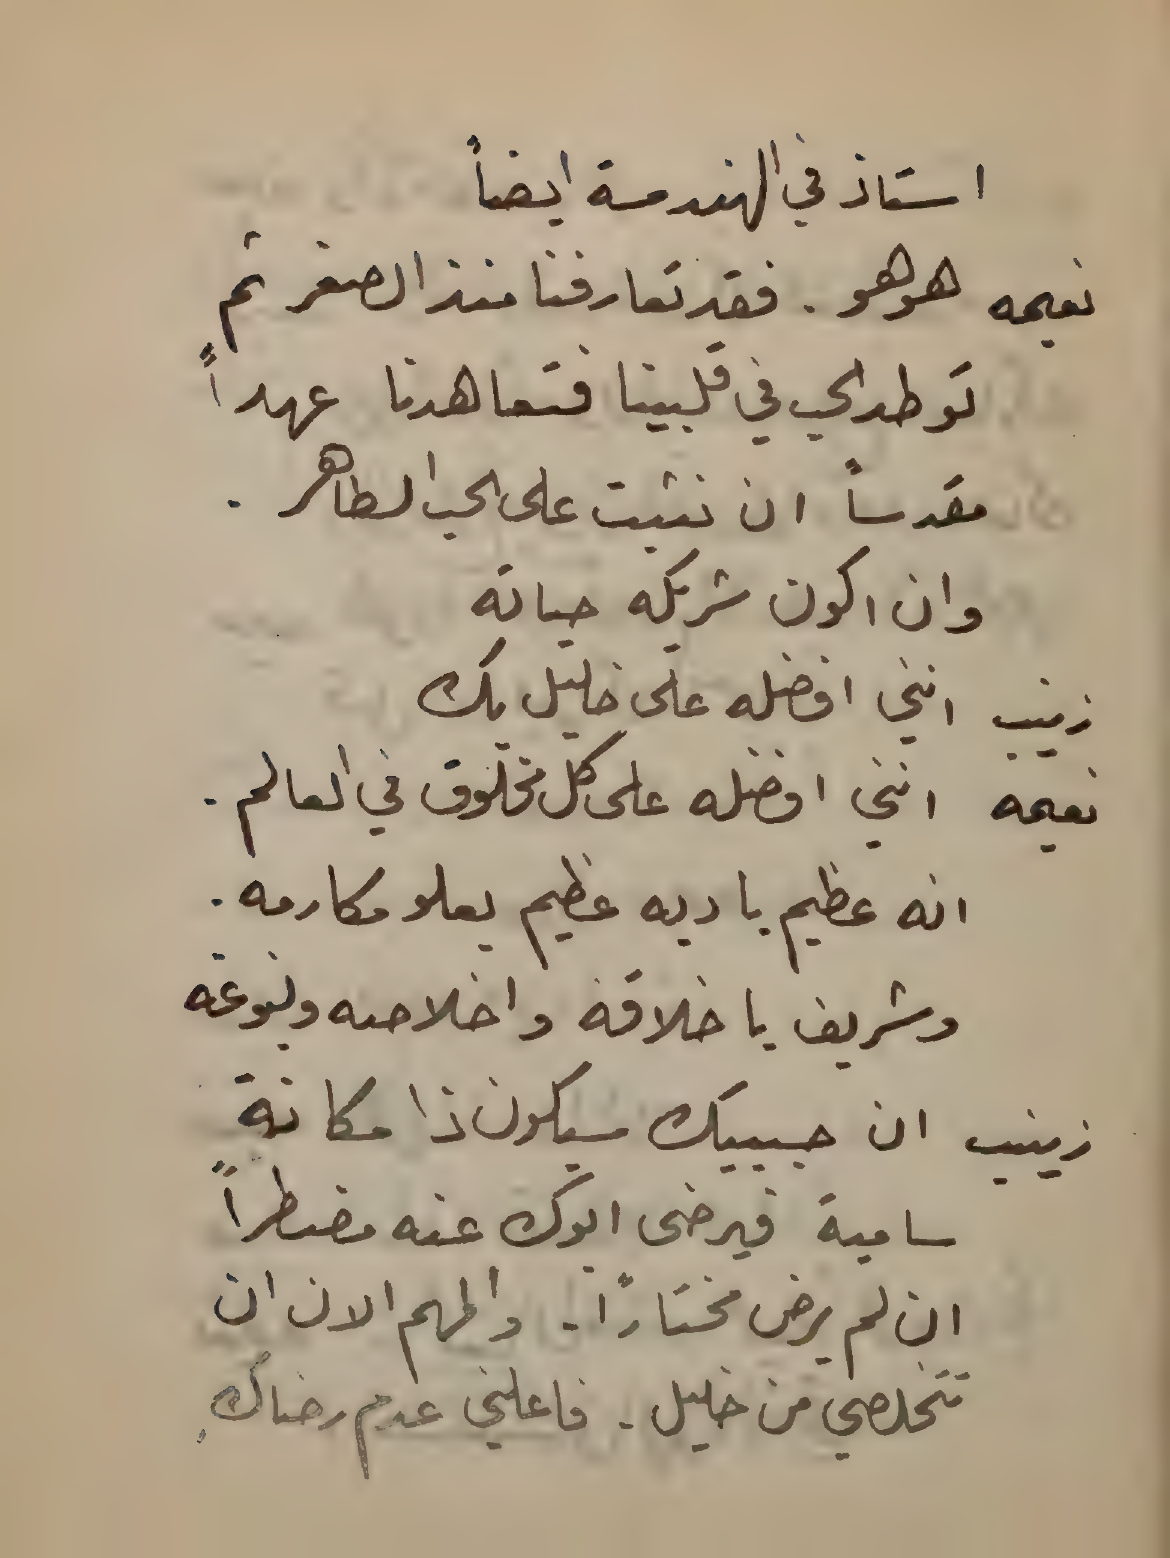 استاذ في الهندسة ايضاً
نعيمه هو هو . فقد تعارفنا منذ الصغر ثم
توطد الحب في قلبينا فتعاهدنا عهداً
مقدساً ان نثبت على الحب الطاهر .
وان اكون شريكه حياته
زينب انني افضله على خليل بك
نعيمه انني افضله على كل مخلوق في العالم .
انه عظيم بادبه عظيم بعلو مكارمه .
وشريف باخلاقه واخلاصه ونبوغه
زينب ان حبيبك سيكون ذا مكانة
سامية فيرضى ابوك عنه مضطراً
ان لم يرض مختاراً . والمهم الان ان
تتخلصي من خليل . فاعلني عدم رضاك